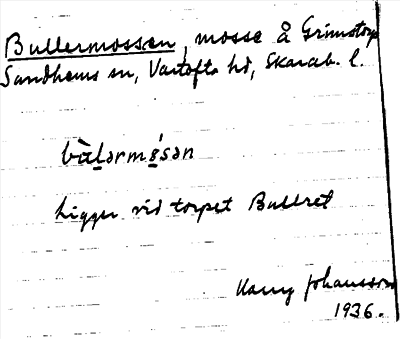 Bullermossen, mosse å Grimstorp
Sandhems sn, Vartofta hd, Skarab. l.
bùlərmo̱sən
ligger vid torpet Bullret
Harry Johansson
1936.